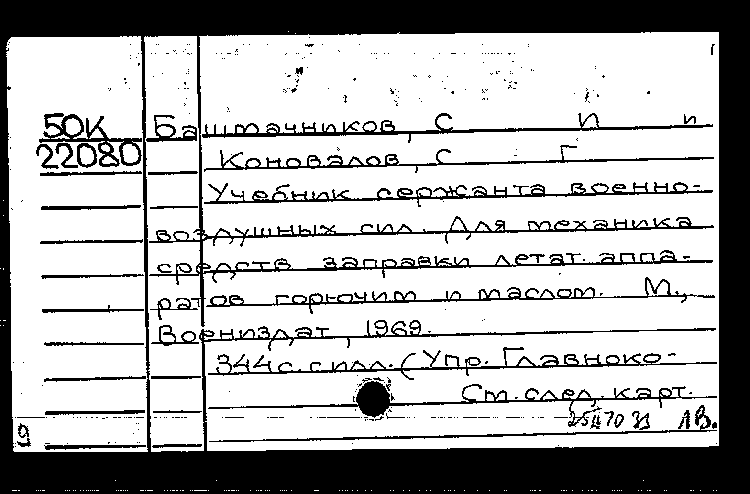 50К Баштачников, С П и
22080 Коновалов, С Г
Учебник сержанта военно-
воздушных сил. Для механика
средств заправки летат. аппа-
ратов горючим и маслом. М.,
Воениздат, 1969.
344 с. с илл. (Упр. Главноко-
Ст. след. карт.
25470 ЛВ.
9